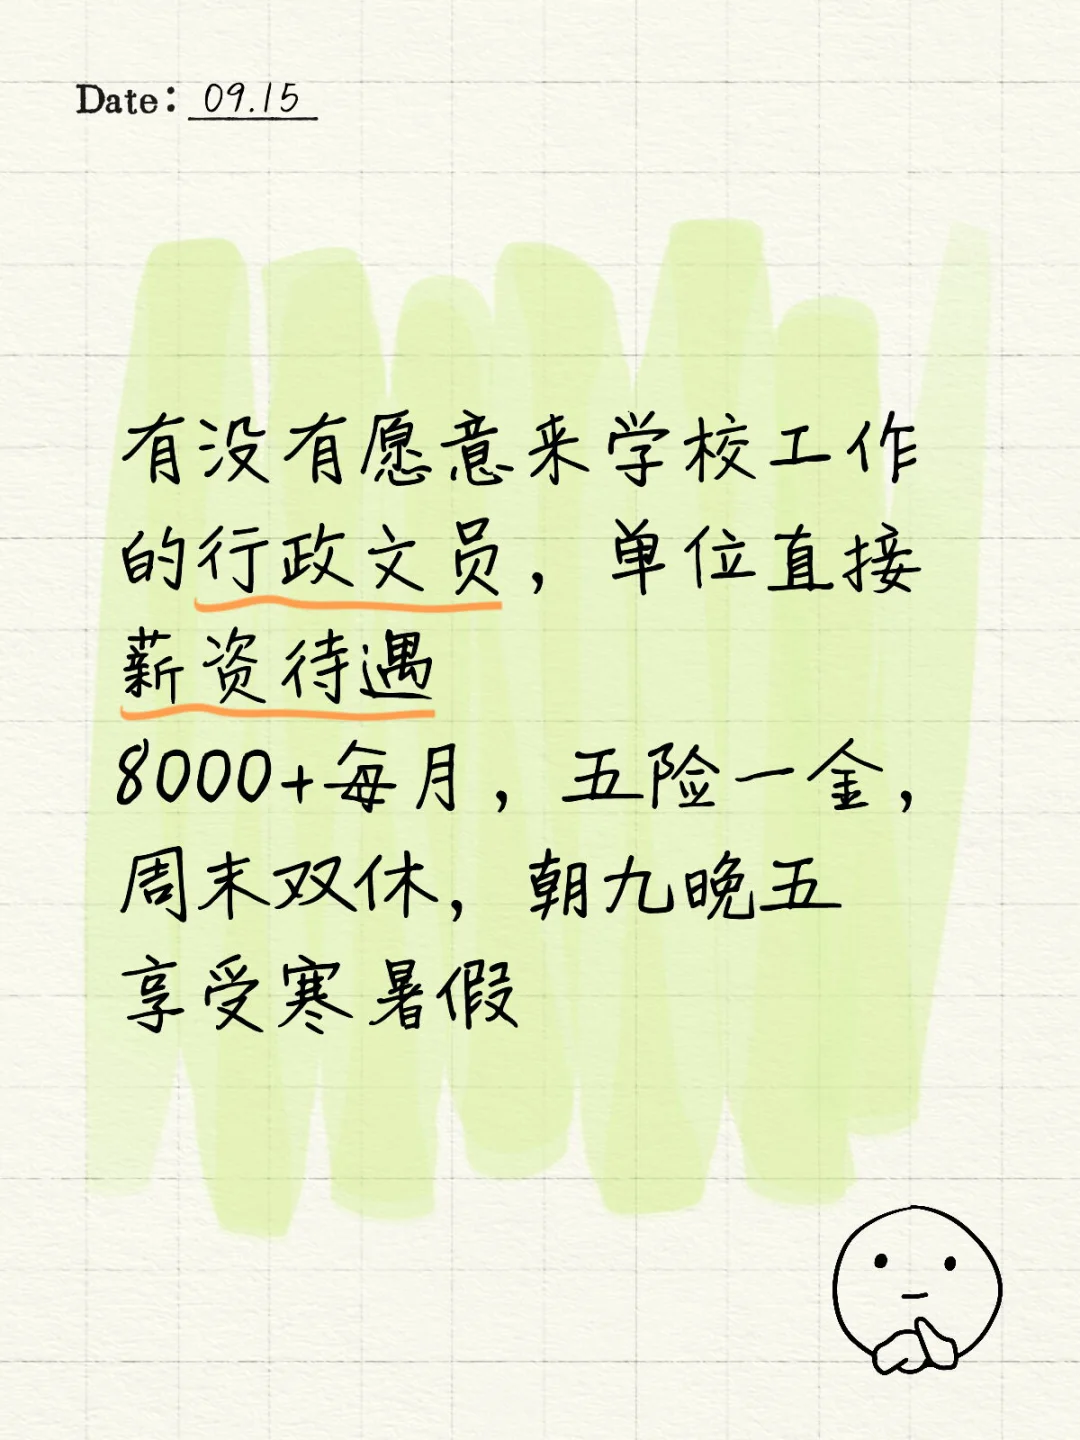 Date: 09.15
有没有愿意来学校工作
的行政文员，单位直接
薪资待遇
8000+每月，五险一金，
周末双休，朝九晚五
享受寒暑假